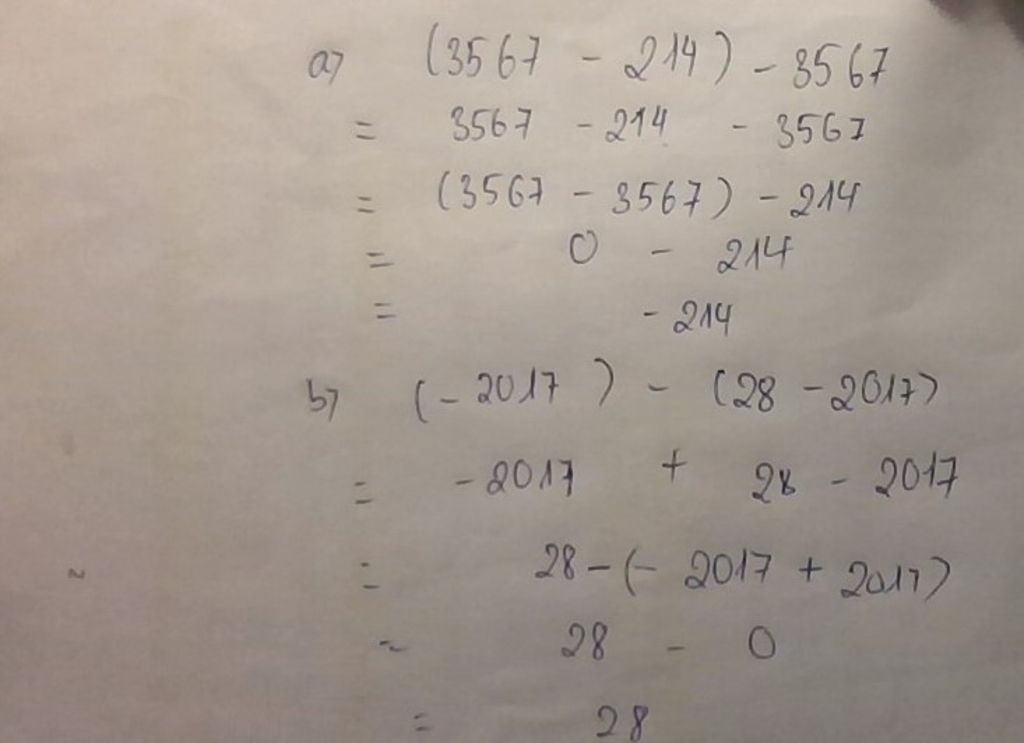 a) (3567 - 214) - 3567
= 3567 - 214 - 3567
= (3567 - 3567) - 214
= 0 - 214
= - 214
b) (- 2017) - (28 - 2017)
= - 2017 + 28 - 2017
= 28 - (- 2017 + 2017)
= 28 - 0
= 28